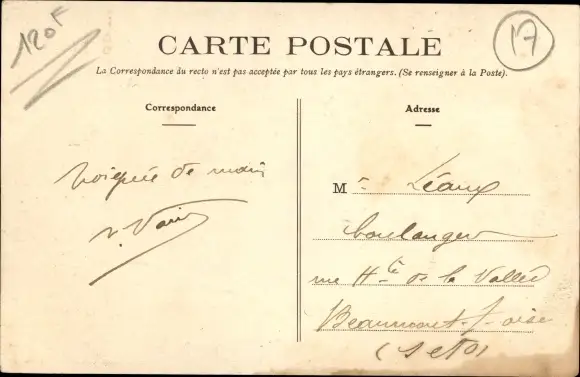 120F
17
CARTE POSTALE
La Correspondance du recto n'est pas acceptée par tous les pays étrangers. (Se renseigner à la Poste).
Correspondance
Poignée de main
Adresse
M r Léaux
boulanger
rue Hte de la Vallée
Beaumont-s-oise
(S et O)